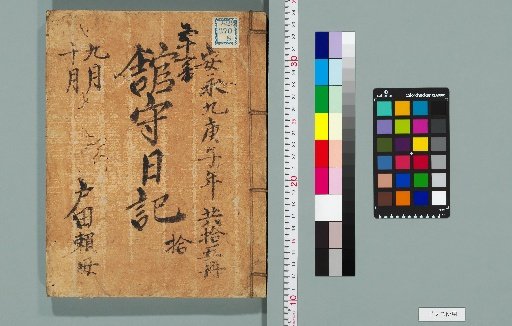 安永九庚子年 共拾五冊
館守日記
拾
九月
十月
戸田頼母
30
20
10
colorchecker CLASSIC